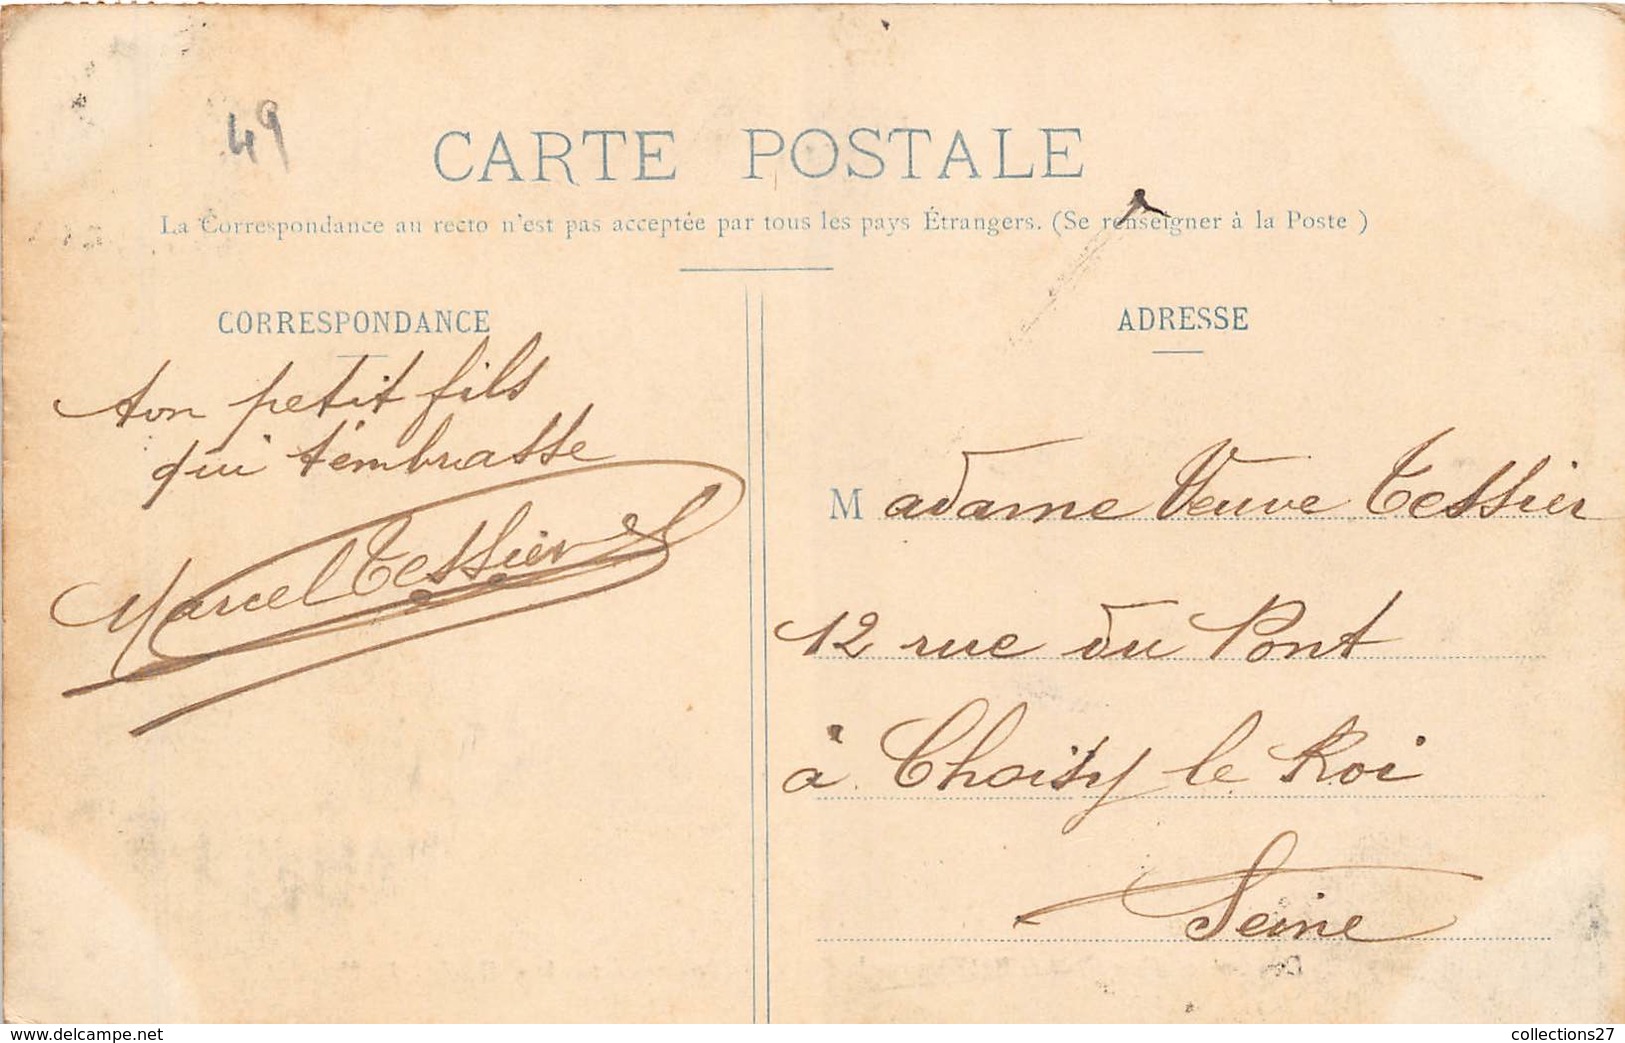 49
CARTE POSTALE
La Correspondance au recto n'est pas acceptée par tous les pays Étrangers. (Se renseigner à la Poste )
CORRESPONDANCE
ton petit fils
qui t'embrasse
Marcel Tessier
ADRESSE
Madame Veuve Tessier
12 rue du Pont
à Choisy le Roi
Seine
www.delcampe.net
collections27